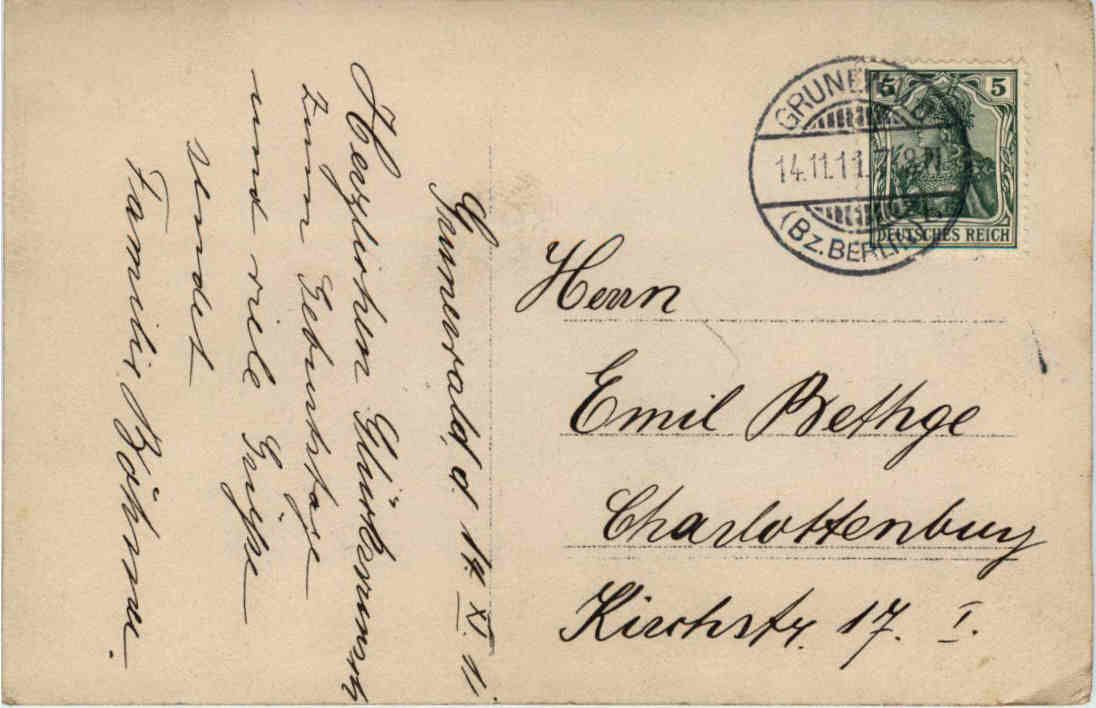 Grunewald, d. 14. XI. 11.
Herzlichen Glückwunsch
zum Geburtstage
und viele Grüße
sendet
Familie Böhme.
GRUNEWALD
14.11.11. 7-8 N.
(BZ. BERLIN)
5 5
DEUTSCHES REICH
Herrn
Emil Bethge
Charlottenburg
Kirchstr. 17. I.